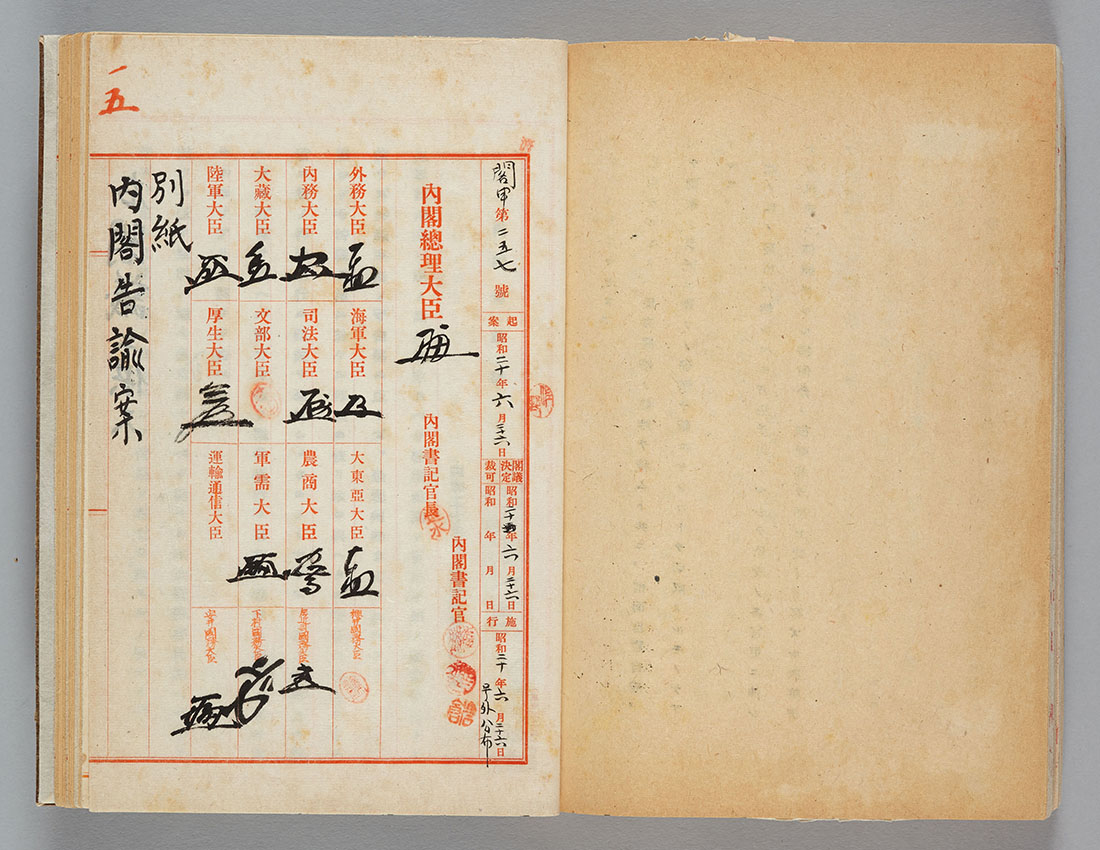 閣甲第二五七號
起案
昭和二十年六月二十六日
閣議決定
昭和二十年六月二十六日
裁可
昭和 年 月 日
施行
昭和二十年六月二十六日
号外公布
內閣書記官
內閣總理大臣
內閣書記官長
外務大臣
海軍大臣
大東亞大臣
櫻井國務大臣
內務大臣
司法大臣
農商大臣
左近司國務大臣
大藏大臣
文部大臣
軍需大臣
下村國務大臣
陸軍大臣
厚生大臣
運輸通信大臣
安井國務大臣
別紙
内閣告諭案
一五